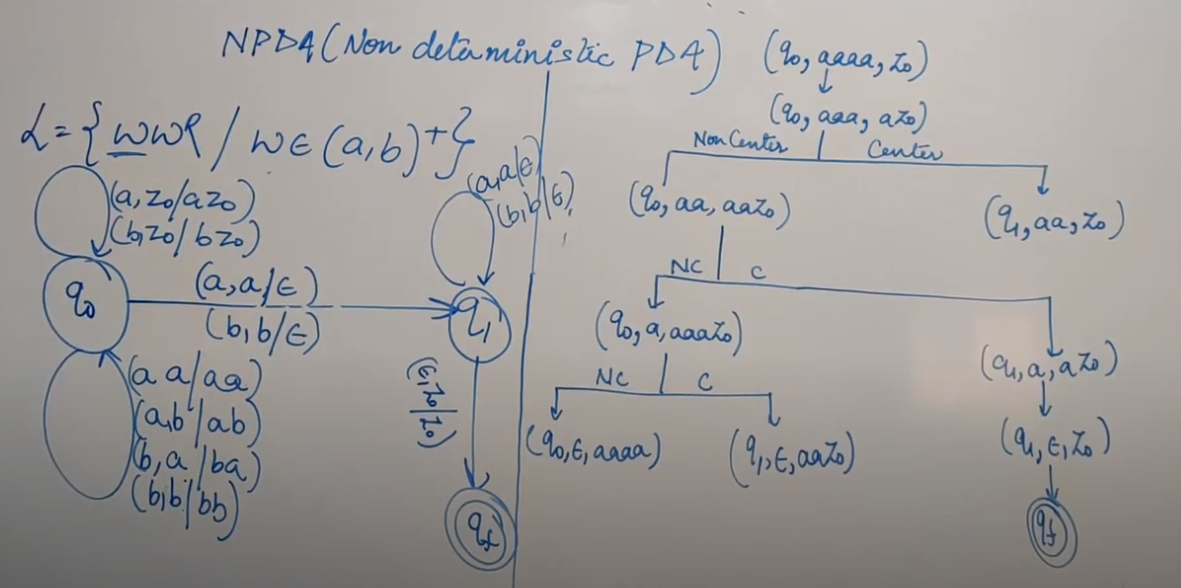 NPDA (Non deterministic PDA)
L = {wwR / w ∈ (a,b)+}
(a, z0/az0)
(b, z0/bz0)
q0
(a,a/ϵ)
(b,b/ϵ)
(a a/aa)
(a,b/ab)
(b,a/ba)
(b,b/bb)
(a,a/ϵ)
(b,b/ϵ)
q1
(ϵ,z0/z0)
qf
(q0, aaaa, z0)
(q0, aaa, az0)
Non Center Center
(q0, aa, aaz0) (q1, aa, z0)
NC C
(q0, a, aaaz0) (q1, a, az0)
NC C
(q0, ϵ, aaaa) (q1, ϵ, aaz0) (q1, ϵ, z0)
qf